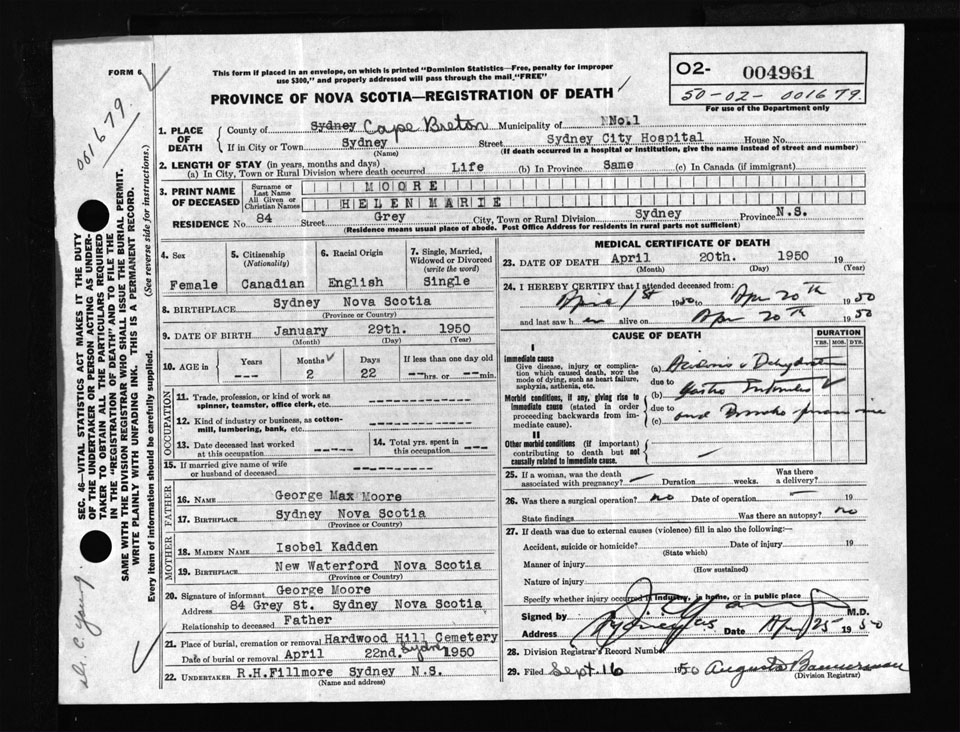 FORM 6
001679.
This form if placed in an envelope, on which is printed "Dominion Statistics—Free, penalty for improper
use $300," and properly addressed will pass through the mail "FREE"
PROVINCE OF NOVA SCOTIA—REGISTRATION OF DEATH
O2- 004961
50-02-001679.
For use of the Department only
1. PLACE OF DEATH
County of Sydney Cape Breton Municipality of No.1
If in City or Town Sydney Street Sydney City Hospital House No.
(Name) (If death occurred in a hospital or institution, give the name instead of street and number)
2. LENGTH OF STAY (in years, months and days)
(a) In City, Town or Rural Division where death occurred Life (b) In Province Same (c) In Canada (if immigrant)
3. PRINT NAME OF DECEASED
Surname or Last Name MOORE
All Given or Christian Names HELEN MARIE
RESIDENCE No. 84 Street Grey City, Town or Rural Division Sydney Province N.S.
(Residence means usual place of abode. Post Office Address for residents in rural parts not sufficient)
4. Sex
Female
5. Citizenship (Nationality)
Canadian
6. Racial Origin
English
7. Single, Married, Widowed or Divorced (write the word)
Single
8. BIRTHPLACE Sydney Nova Scotia
(Province or Country)
9. DATE OF BIRTH January 29th. 1950
(Month) (Day) (Year)
10. AGE in Years Months Days If less than one day old
--- 2 22 --hrs. or --min.
OCCUPATION
11. Trade, profession, or kind of work as
spinner, teamster, office clerk, etc.
12. Kind of industry or business, as cotton-
mill, lumbering, bank, etc.
13. Date deceased last worked
at this occupation
14. Total yrs. spent in
this occupation
15. If married give name of wife
or husband of deceased
FATHER
16. NAME George Max Moore
17. BIRTHPLACE Sydney Nova Scotia
(Province or Country)
MOTHER
18. MAIDEN NAME Isobel Kadden
19. BIRTHPLACE New Waterford Nova Scotia
(Province or Country)
20. Signature of informant George Moore
Address 84 Grey St. Sydney Nova Scotia
Relationship to deceased Father
21. Place of burial, cremation or removal Hardwood Hill Cemetery
Sydney
Date of burial or removal April 22nd. 1950
22. UNDERTAKER R.H.Fillmore Sydney N.S.
(Name and address)
MEDICAL CERTIFICATE OF DEATH
23. DATE OF DEATH April 20th. 1950 19
(Month) (Day) (Year)
24. I HEREBY CERTIFY that I attended deceased from:
April 1st 1950 to Apr 20th 1950
and last saw h er alive on Apr 20th 1950
CAUSE OF DEATH
DURATION
YRS. MOS. DYS.
I
Immediate cause
Give disease, injury or complica-
tion which caused death, not the
mode of dying, such as heart failure,
asphyxia, asthenia, etc.
(a)
due to
Morbid conditions, if any, giving rise to
immediate cause (stated in order
proceeding backwards from im-
mediate cause).
(b) Gastro
due to
(c) and
II
Other morbid conditions (if important)
contributing to death but not
causally related to immediate cause.
25. If a woman, was the death
associated with pregnancy? — Duration weeks. Was there
a delivery?
26. Was there a surgical operation? no Date of operation — 19
State findings Was there an autopsy? no
27. If death was due to external causes (violence) fill in also the following—
Accident, suicide or homicide? Date of injury 19
(State which)
Manner of injury
(How sustained)
Nature of injury
Specify whether injury occurred in industry, in home, or in public place
Signed by M.D.
Address Sydney NS Date Apr 25 1950
28. Division Registrar's Record Number
29. Filed Sept. 16 1950
(Division Registrar)
SEC. 46—VITAL STATISTICS ACT MAKES IT THE DUTY
OF THE UNDERTAKER OR PERSON ACTING AS UNDER-
TAKER TO OBTAIN ALL THE PARTICULARS REQUIRED
IN THE "REGISTRATION OF DEATH" AND TO FILE THE
SAME WITH THE DIVISION REGISTRAR WHO SHALL ISSUE THE BURIAL PERMIT.
WRITE PLAINLY WITH UNFADING INK. THIS IS A PERMANENT RECORD.
Every item of information should be carefully supplied. (See reverse side for instructions.)
Dr. C. Young.